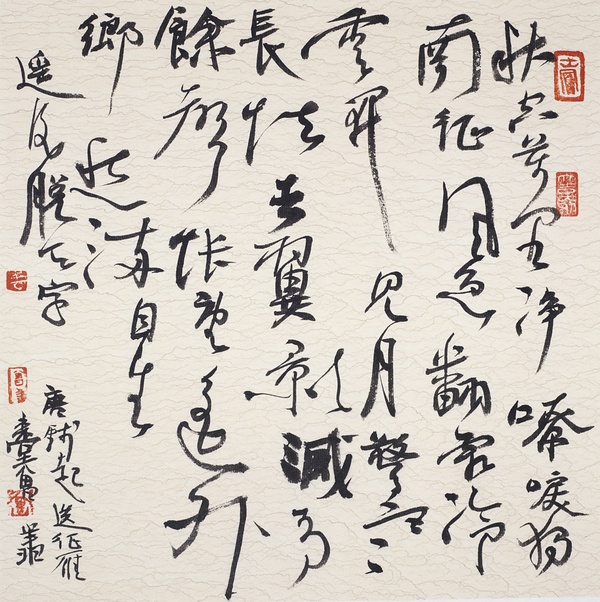 秋空萬里净嘹唳獨
南征風急翻霜冷
雲開見月驚塞
長怯去翼影滅有
餘聲悵望遙外
鄉愁滿自生
遥后脱天字
唐錢起送征雁